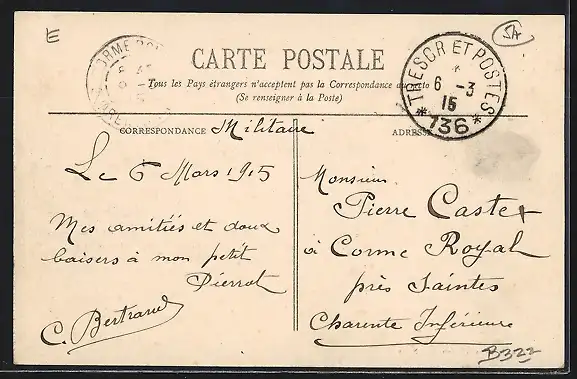 E
SA
CARTE POSTALE
Tous les Pays étrangers n'acceptent pas la Correspondance au recto
(Se renseigner à la Poste)
TRESOR ET POSTES
*
6 -3
15
* 136 *
CORRESPONDANCE Militaire
ADRESSE
Le 6 Mars 1915
Mes amitiés et doux
baisers à mon petit
Pierrot
C. Bertrand
Monsieur
Pierre Castex
à Corme Royal
près Saintes
Charente Inférieure
B322